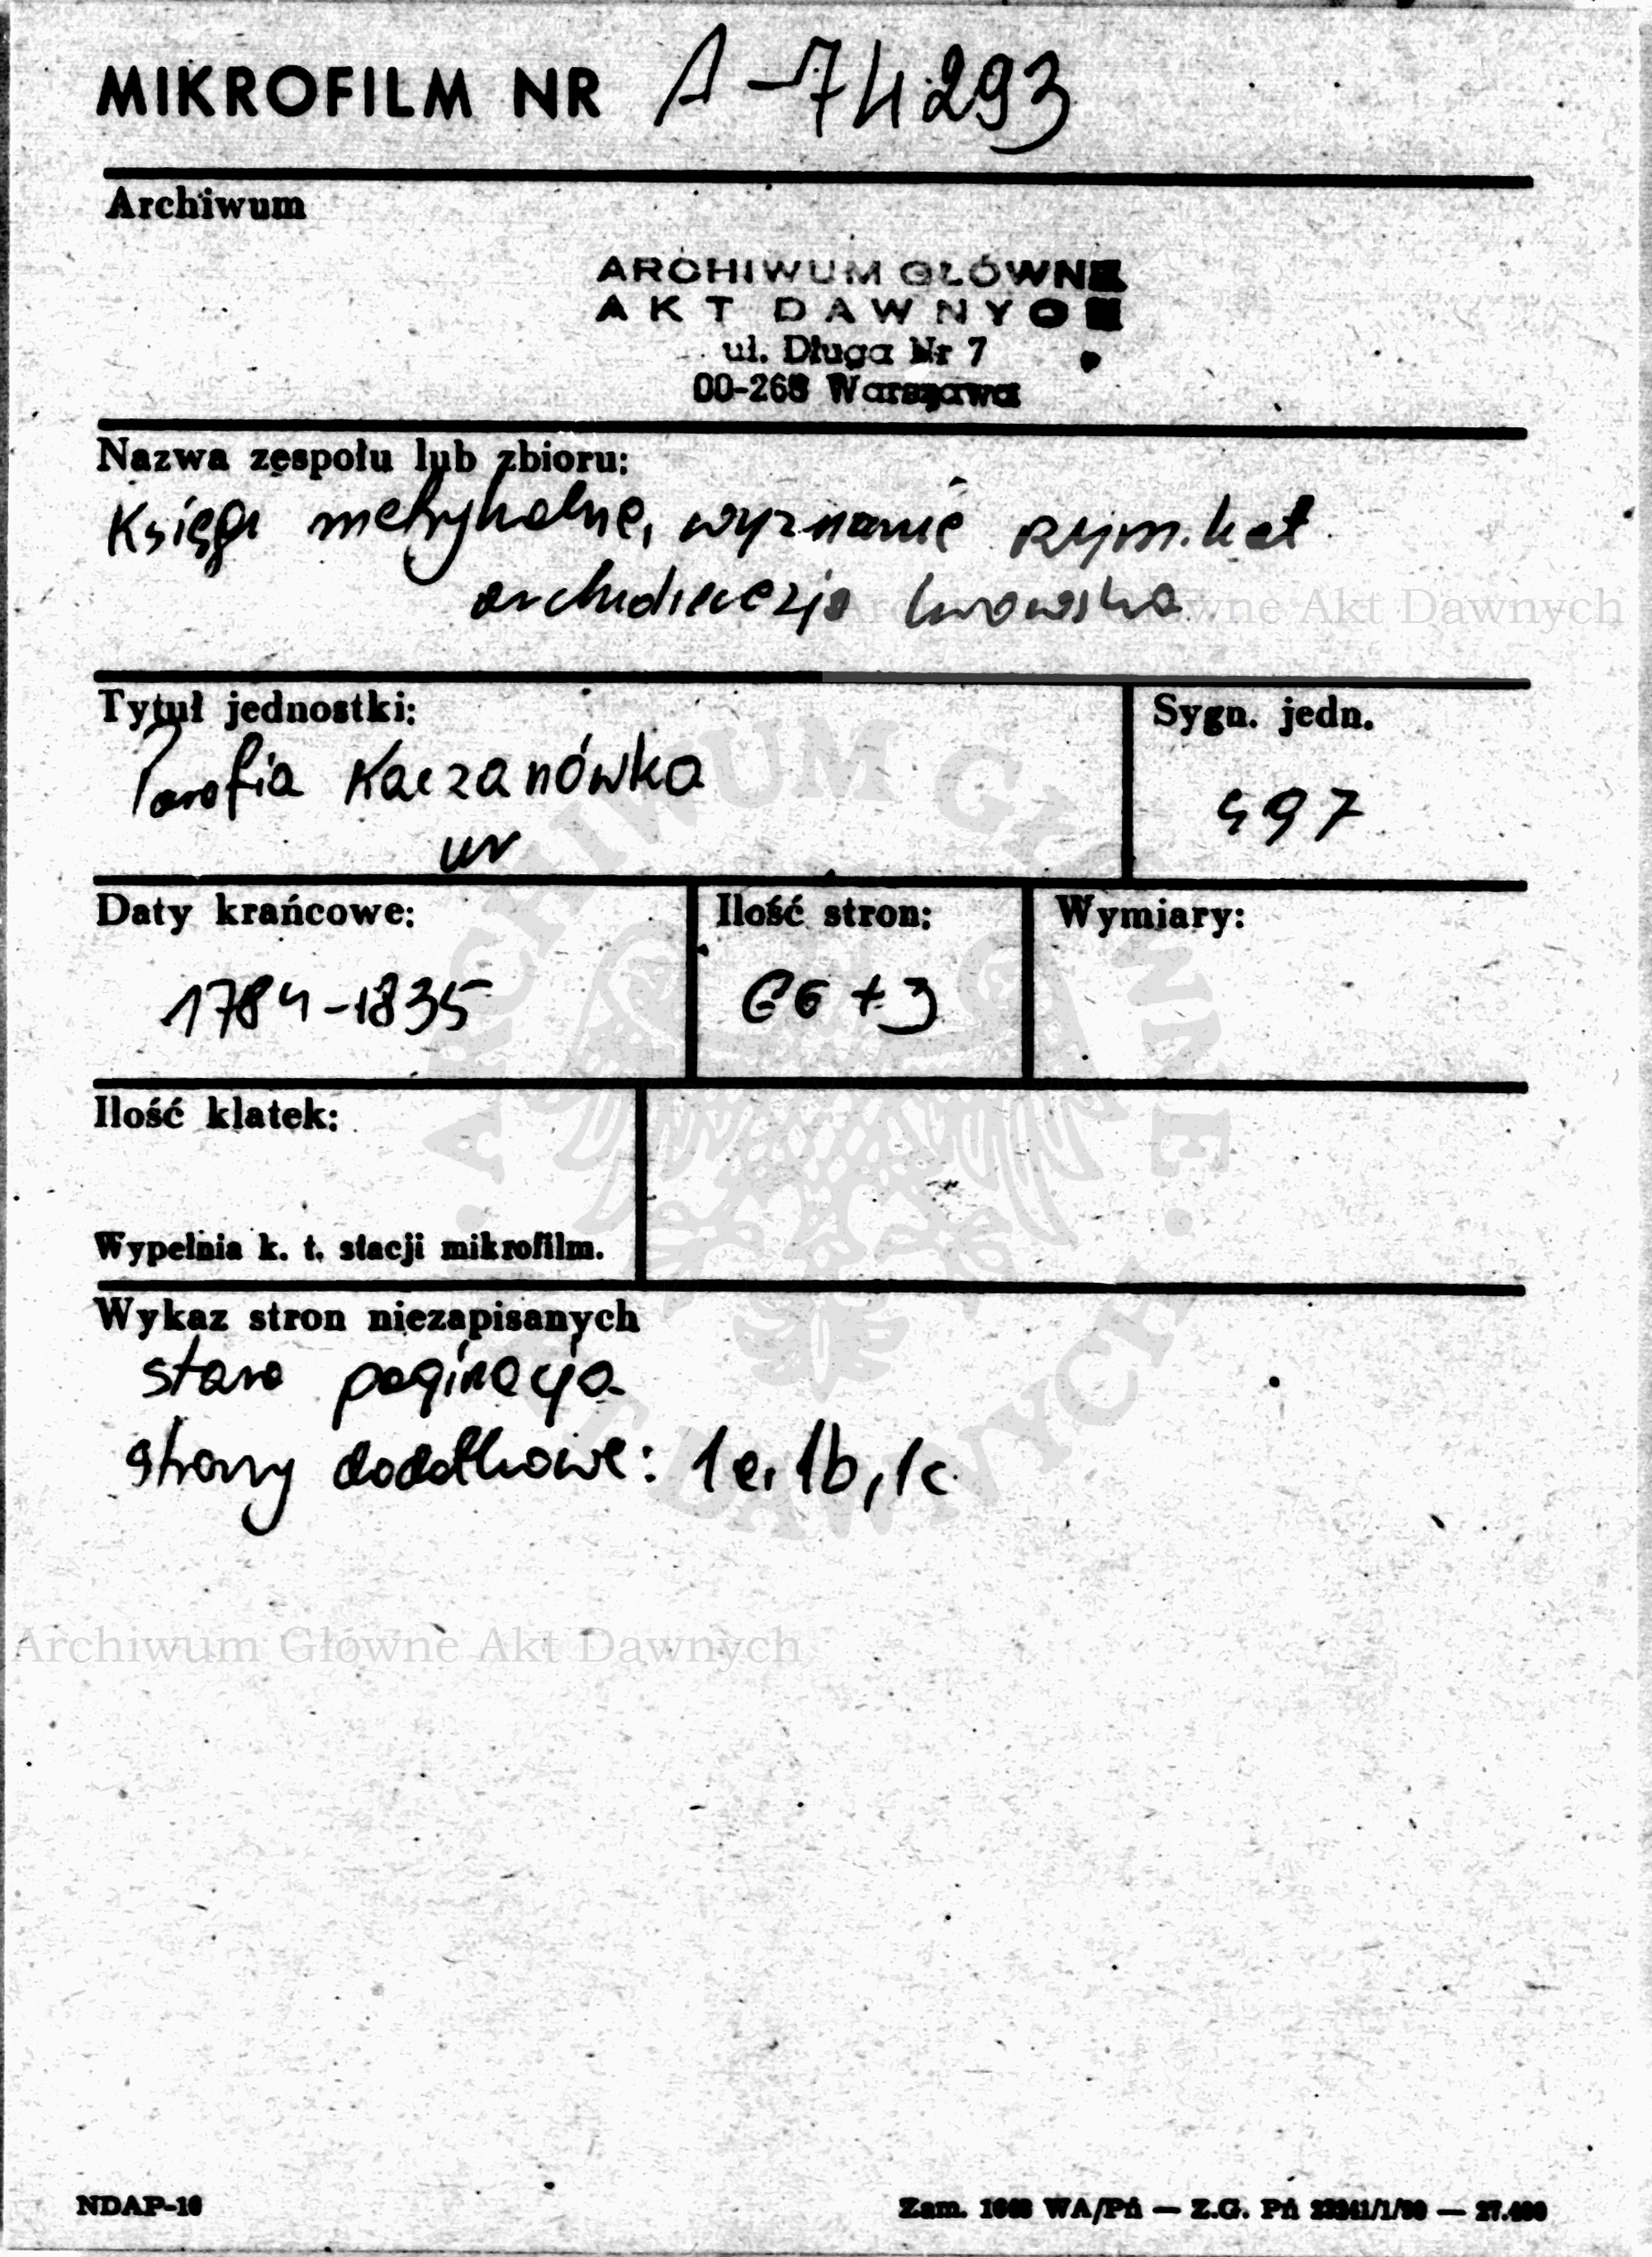 MIKROFILM NR A-74293
Archiwum
ARCHIWUM GŁÓWNE
AKT DAWNYCH
ul. Długa Nr 7
00-263 Warszawa
Nazwa zespołu lub zbioru:
Księgi metrykalne, wyznanie rzym. kat
archidiecezja lwowska
Archiwum Główne Akt Dawnych
Tytuł jednostki:
Parafia Kaczanówka
ur
Sygn. jedn.
497
Daty krańcowe:
1784-1835
Ilość stron:
66 + 3
Wymiary:
Ilość klatek:
Wypełnia k. t. stacji mikrofilm.
ARCHIWUM GŁÓWNE · AKT DAWNYCH ·
Wykaz stron niezapisanych
stara paginacja
strony dodatkowe: 1a, 1b, 1c
Archiwum Główne Akt Dawnych
NDAP-10
Zam. WA/Pń — Z.G. Pń — 27.400